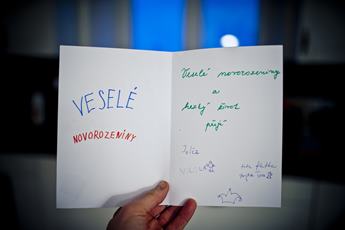 VESELÉ
NOVOROZENINY
Veselé novorozeniny
a
hezký život
přejí